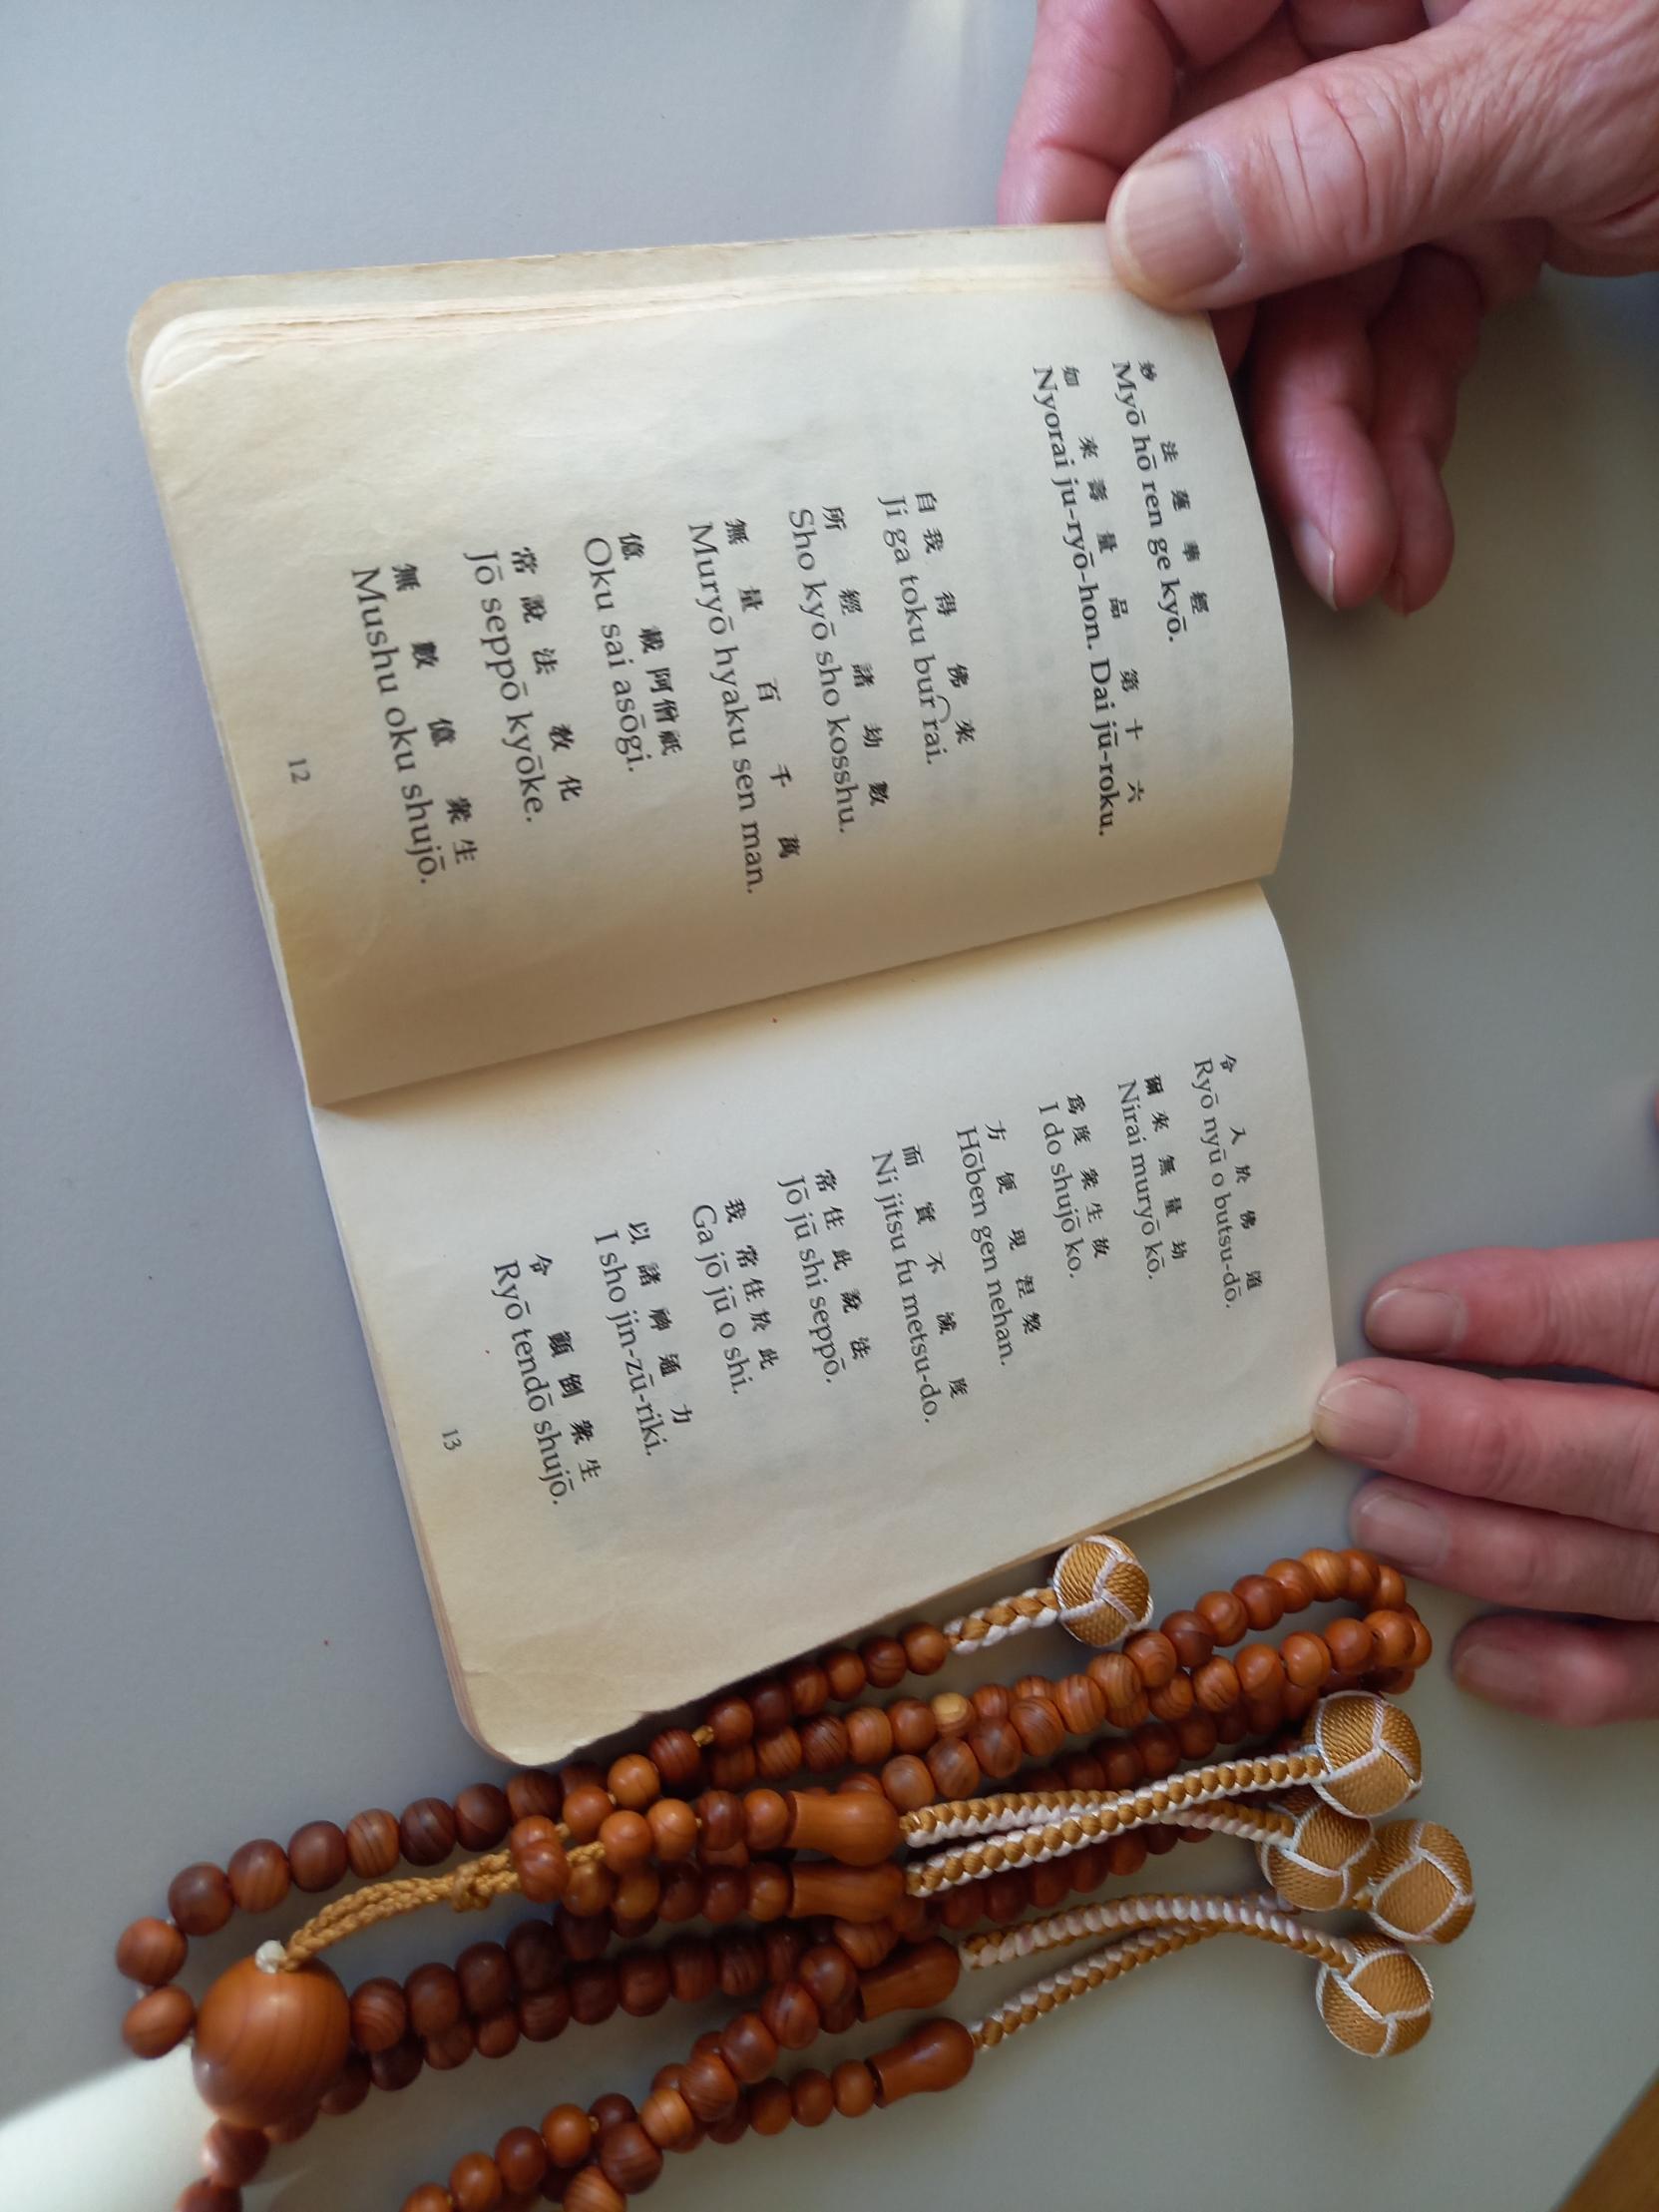 妙 法 蓮 華 經
Myō hō ren ge kyō.
如 來 壽 量 品 第 十 六
Nyorai ju-ryō-hon. Dai jū-roku.
自 我 得 佛 來
Ji ga toku bur rai.
所 經 諸 劫 數
Sho kyō sho kosshu.
無 量 百 千 萬
Muryō hyaku sen man.
億 載 阿 僧 祇
Oku sai asōgi.
常 說 法 敎 化
Jō seppō kyōke.
無 數 億 衆 生
Mushu oku shujō.
12
令 入 於 佛 道
Ryō nyū o butsu-dō.
爾 來 無 量 劫
Nirai muryō kō.
爲 度 衆 生 故
I do shujō ko.
方 便 現 涅 槃
Hōben gen nehan.
而 實 不 滅 度
Ni jitsu fu metsu-do.
常 住 此 說 法
Jō jū shi seppō.
我 常 住 於 此
Ga jō jū o shi.
以 諸 神 通 力
I sho jin-zū-riki.
令 顚 倒 衆 生
Ryō tendō shujō.
13